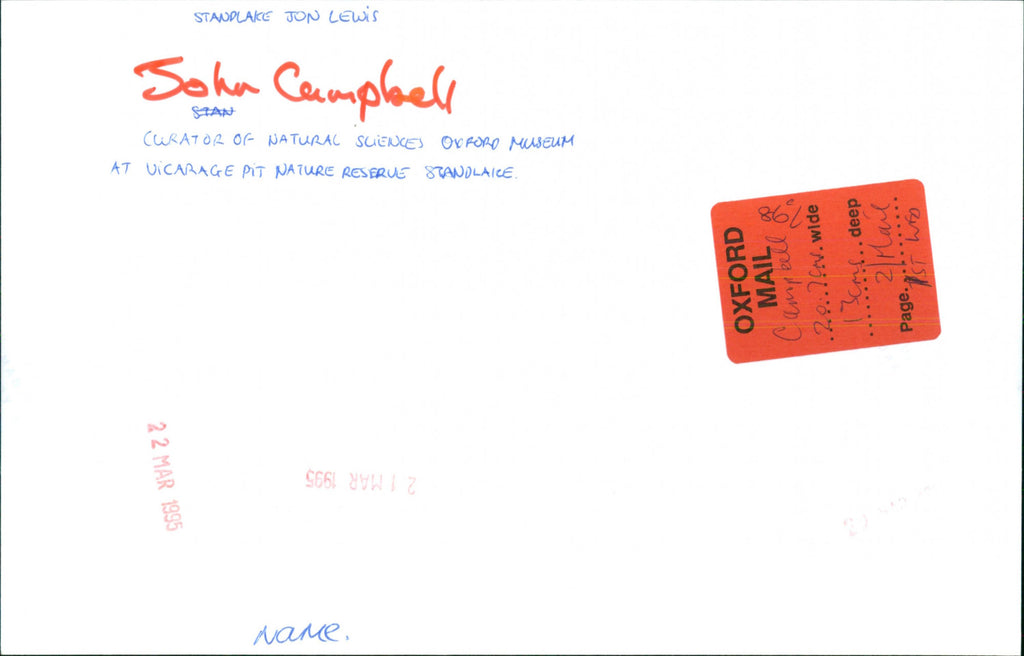 STANDLAKE JON LEWIS
John Campbell
STAN
CURATOR OF NATURAL SCIENCES OXFORD MUSEUM
AT VICARAGE PIT NATURE RESERVE STANDLAKE.
OXFORD
MAIL
Campbell
20.7cm. wide
13cms deep
2/Mail
Page 1ST WED
22 MAR 1995
21 MAR 1995
NAME.